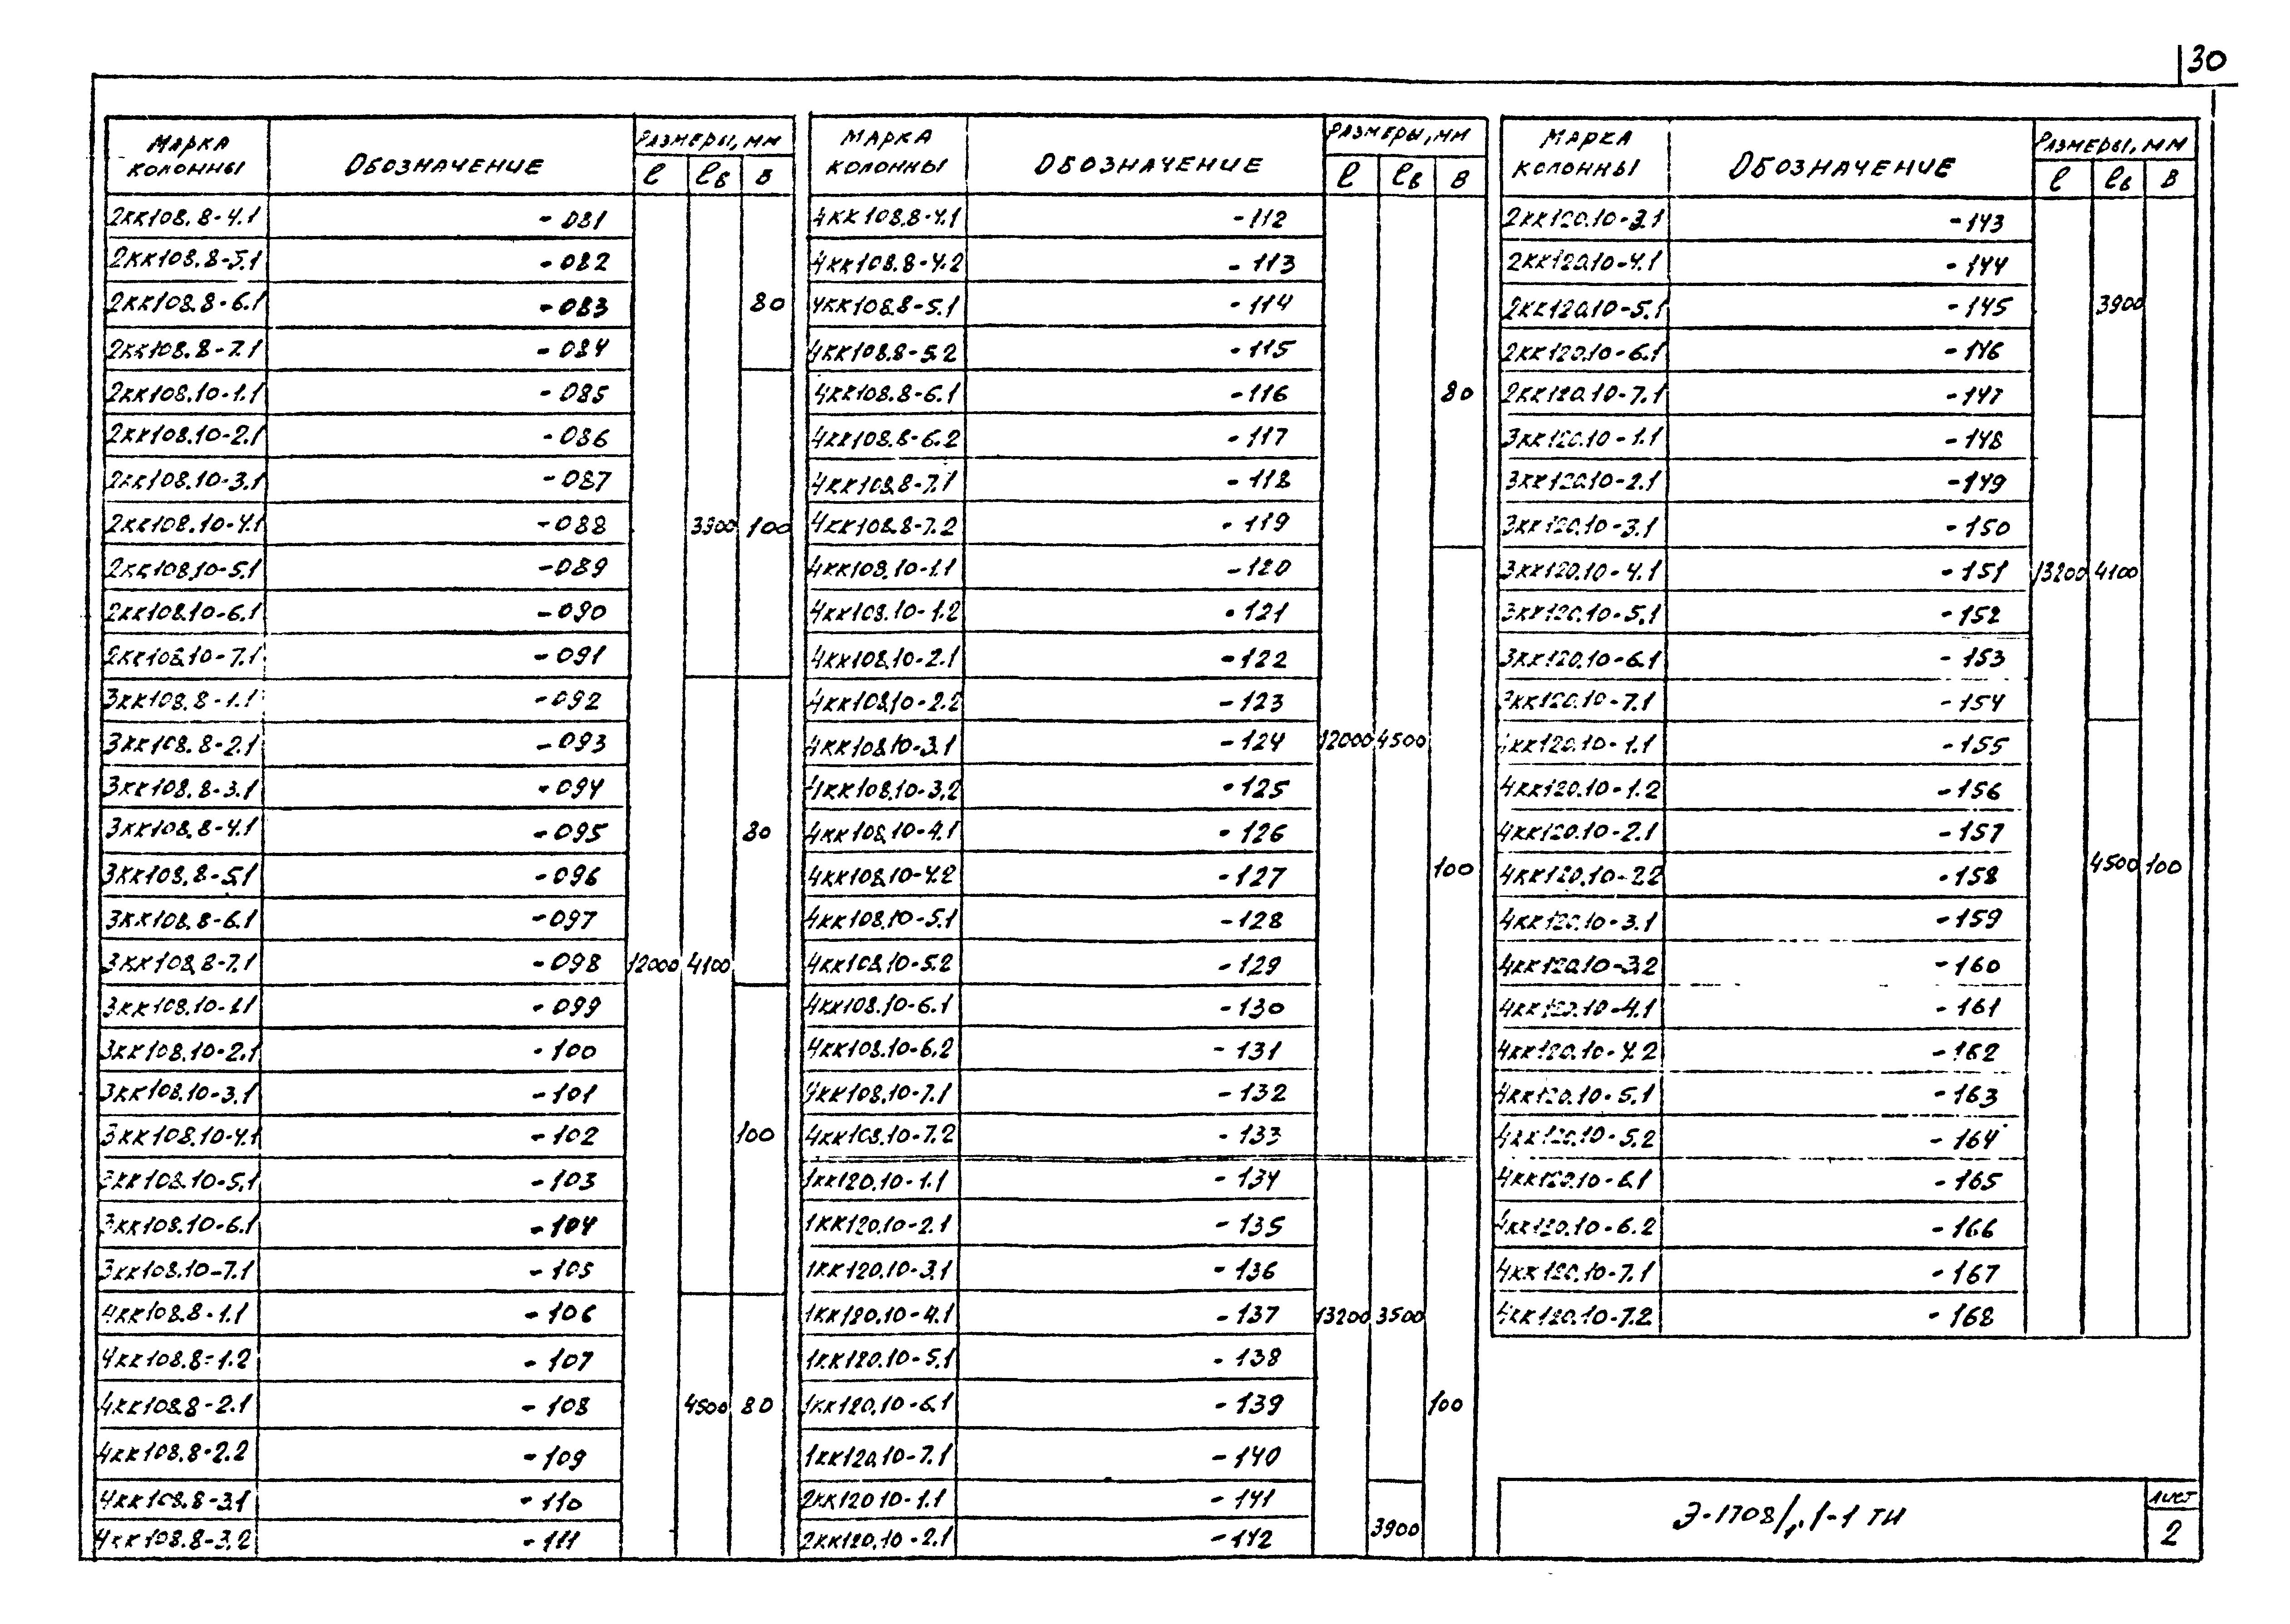 30
МАРКА КОЛОННЫ ОБОЗНАЧЕНИЕ РАЗМЕРЫ, ММ ℓ ℓв В
2КК108.8-4.1 -081
2КК108.8-5.1 -082
2КК108.8-6.1 -083 80
2КК108.8-7.1 -084
2КК108.10-1.1 -085
2КК108.10-2.1 -086
2КК108.10-3.1 -087
2КК108.10-4.1 -088 3900 100
2КК108.10-5.1 -089
2КК108.10-6.1 -090
2КК108.10-7.1 -091
3КК108.8-1.1 -092
3КК108.8-2.1 -093
3КК108.8-3.1 -094
3КК108.8-4.1 -095 80
3КК108.8-5.1 -096
3КК108.8-6.1 -097
3КК108.8-7.1 -098 12000 4100
3КК108.10-1.1 -099
3КК108.10-2.1 -100
3КК108.10-3.1 -101
3КК108.10-4.1 -102 100
3КК108.10-5.1 -103
3КК108.10-6.1 -104
3КК108.10-7.1 -105
4КК108.8-1.1 -106
4КК108.8-1.2 -107
4КК108.8-2.1 -108 4500 80
4КК108.8-2.2 -109
4КК108.8-3.1 -110
4КК108.8-3.2 -111
МАРКА КОЛОННЫ ОБОЗНАЧЕНИЕ РАЗМЕРЫ, ММ ℓ ℓв В
4КК108.8-4.1 -112
4КК108.8-4.2 -113
4КК108.8-5.1 -114
4КК108.8-5.2 -115
4КК108.8-6.1 -116 80
4КК108.8-6.2 -117
4КК108.8-7.1 -118
4КК108.8-7.2 -119
4КК108.10-1.1 -120
4КК108.10-1.2 -121
4КК108.10-2.1 -122
4КК108.10-2.2 -123
4КК108.10-3.1 -124 12000 4500
4КК108.10-3.2 -125
4КК108.10-4.1 -126
4КК108.10-4.2 -127 100
4КК108.10-5.1 -128
4КК108.10-5.2 -129
4КК108.10-6.1 -130
4КК108.10-6.2 -131
4КК108.10-7.1 -132
4КК108.10-7.2 -133
1КК120.10-1.1 -134
1КК120.10-2.1 -135
1КК120.10-3.1 -136
1КК120.10-4.1 -137 13200 3500
1КК120.10-5.1 -138
1КК120.10-6.1 -139 100
1КК120.10-7.1 -140
2КК120.10-1.1 -141
2КК120.10-2.1 -142 3900
МАРКА КОЛОННЫ ОБОЗНАЧЕНИЕ РАЗМЕРЫ, ММ ℓ ℓв В
2КК120.10-3.1 -143
2КК120.10-4.1 -144
2КК120.10-5.1 -145 3900
2КК120.10-6.1 -146
2КК120.10-7.1 -147
3КК120.10-1.1 -148
3КК120.10-2.1 -149
3КК120.10-3.1 -150
3КК120.10-4.1 -151 13200 4100
3КК120.10-5.1 -152
3КК120.10-6.1 -153
3КК120.10-7.1 -154
4КК120.10-1.1 -155
4КК120.10-1.2 -156
4КК120.10-2.1 -157
4КК120.10-2.2 -158 4500 100
4КК120.10-3.1 -159
4КК120.10-3.2 -160
4КК120.10-4.1 -161
4КК120.10-4.2 -162
4КК120.10-5.1 -163
4КК120.10-5.2 -164
4КК120.10-6.1 -165
4КК120.10-6.2 -166
4КК120.10-7.1 -167
4КК120.10-7.2 -168
Э-1708/1.1-1 ТИ
ЛИСТ
2